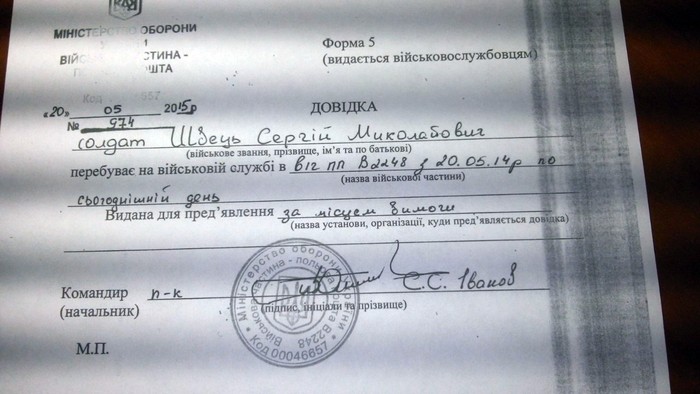 МІНІСТЕРСТВО ОБОРОНИ
ВІЙ СТИНА -
ШТА
Код 657
Форма 5
(видається військовослужбовцям)
«20» 05 2015р
№ 974
ДОВІДКА
солдат Швець Сергій Миколайович
(військове звання, прізвище, ім’я та по батькові)
перебуває на військовій службі в в/г ПП В2248 з 20.05.14р по
(назва військової частини)
сьогоднішній день
Видана для пред’явлення за місцем вимоги
(назва установи, організації, куди пред’являється довідка)
Командир п-к С.С. Іванов
(начальник) (підпис, ініціали та прізвище)
М.П.
Міністерство оборони України
Військова частина - польова пошта В2248
Код 00046657